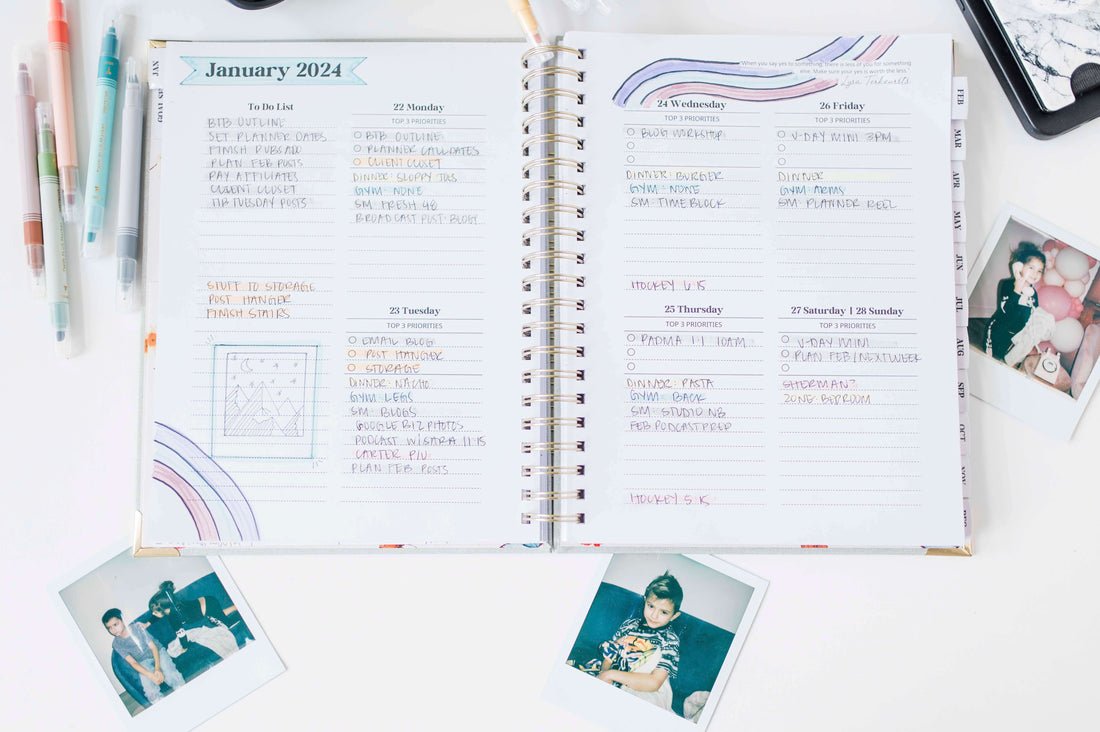 JAN
GOALS
January 2024
To Do List
BTB OUTLINE
SET PLANNER DATES
FINISH DUBSADO
PLAN FEB POSTS
PAY AFFILIATES
CLIENT CLOSET
TUESDAY POSTS
STUFF TO STORAGE
POST HANGER
FINISH STAIRS
22 Monday
TOP 3 PRIORITIES
BTB OUTLINE
PLANNER CALL DATES
CLIENT CLOSET
DINNER: SLOPPY JOES
GYM: NONE
SM: FRESH 48
BROADCAST POST: BLOG
23 Tuesday
TOP 3 PRIORITIES
EMAIL BLOG
POST HANGER
STORAGE
DINNER: NACHO
GYM: LEGS
SM: BLOGS
GOOGLE BIZ PHOTOS
PODCAST W/SARA 11:15
CARTER P/U
PLAN FEB POSTS
"When you say yes to something, there is less of you for something
else. Make sure your yes is worth the less."
24 Wednesday
TOP 3 PRIORITIES
BLOG WORKSHOP
DINNER: BURGER
GYM: NONE
SM: TIMEBLOCK
HOCKEY 6:15
25 Thursday
TOP 3 PRIORITIES
PADMA 1:1 10AM
DINNER: PASTA
GYM: BACK
SM: STUDIO NB
FEB PODCAST PREP
HOCKEY 5:15
26 Friday
TOP 3 PRIORITIES
V-DAY MINI 3PM
DINNER
GYM: ARMS
SM: PLANNER REEL
27 Saturday | 28 Sunday
TOP 3 PRIORITIES
V-DAY MINI
PLAN FEB/NEXT WEEK
SHERMAN?
ZONE: BEDROOM
FEB
MAR
APR
MAY
JUN
JUL
AUG
SEP
OCT
NOV